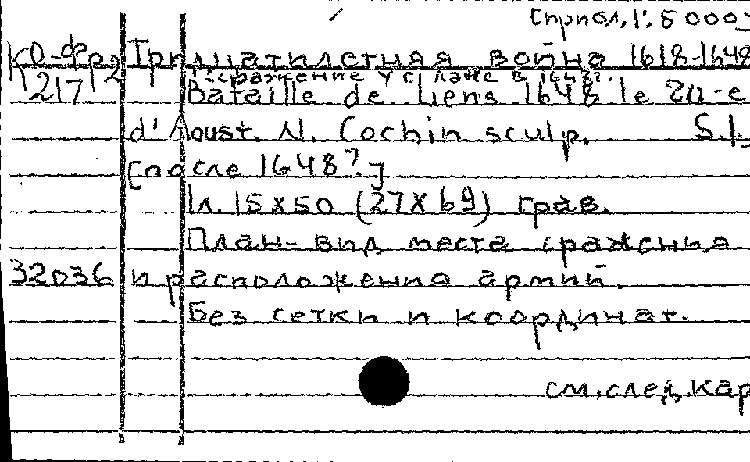 [прибл. 1:5000
КО-Фр Тридцатилетняя война 1618-1648
1217 12 Сражение у г. Ланс в 1648г.
Bataille de Liens 1648 le 20-e
d'Aoust. N. Cochin sculp. S.l.
[после 1648?]
1л. 15х50 (27х69) грав.
План-вид места сражения
32036 и расположения армий.
Без сетки и координат.
см.след.кар